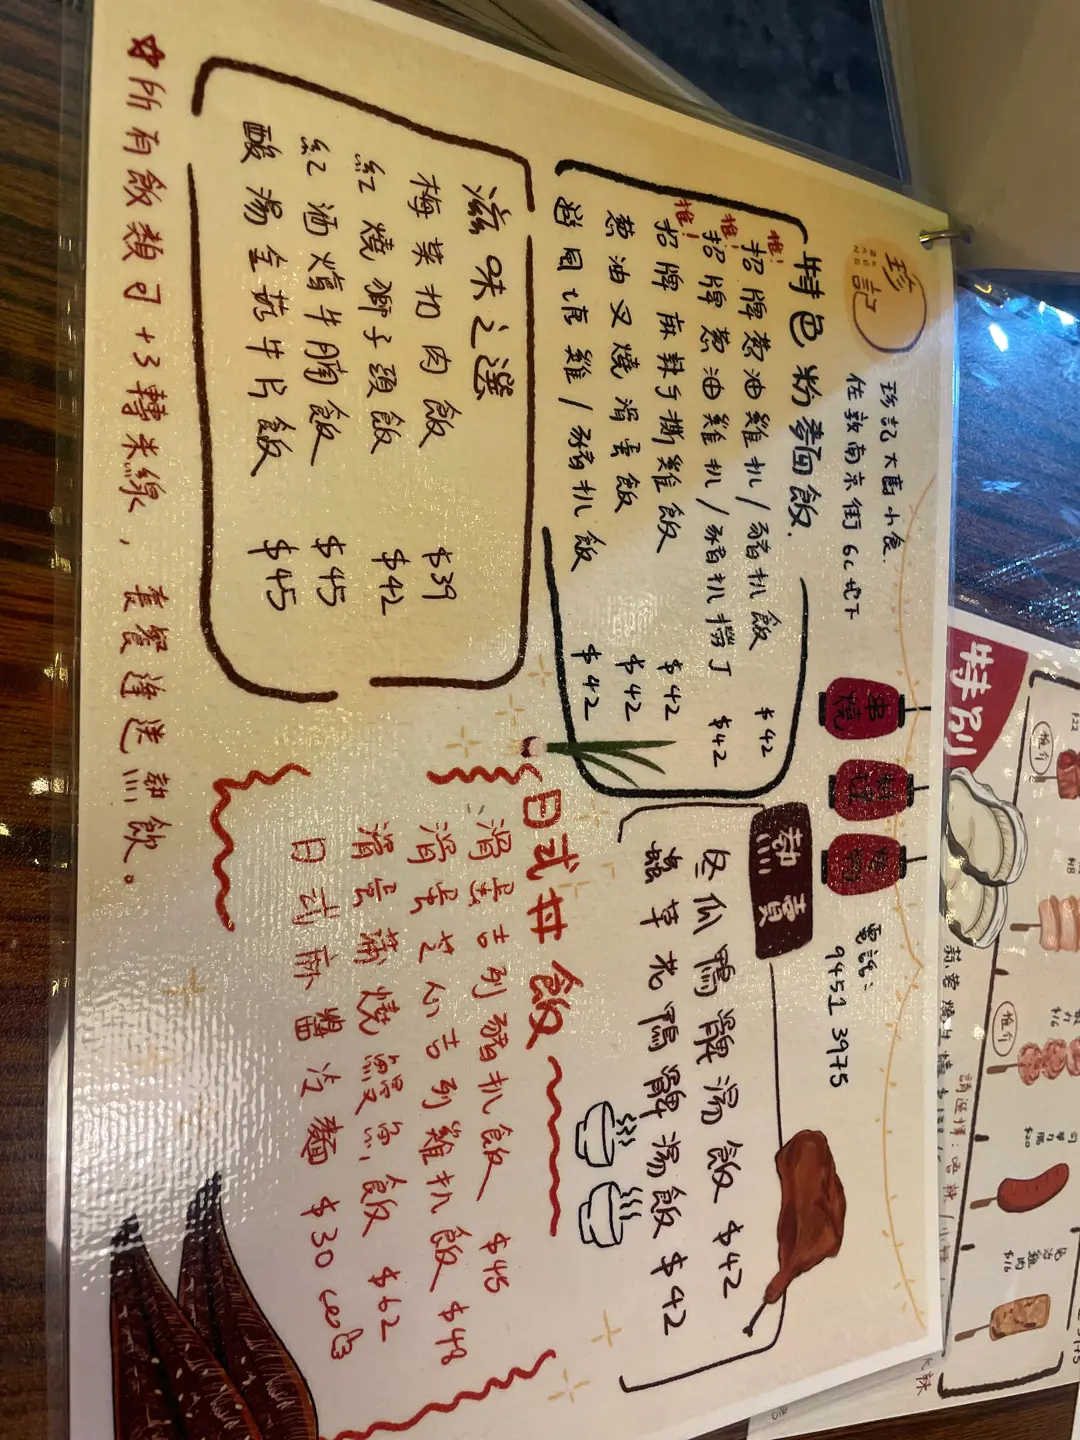 珍記
珍記大圍小食
佐敦南京街6C地下
串燒
電話：
9451 3975
特色粉麵飯
推！招牌葱油雞扒/豬扒飯 $42
推！招牌葱油雞扒/豬扒撈丁 $42
推！招牌麻辣手撕雞飯 $42
葱油叉燒滑蛋飯 $42
避風塘雞/豬扒飯 $42
滋味之選
梅菜扣肉飯 $39
紅燒獅子頭飯 $42
紅酒燴牛腩飯 $45
酸湯金菇牛片飯 $45
熱賣
冬瓜鴨髀湯飯 $42
蟲草花鴨髀湯飯 $42
日式丼飯
滑蛋吉列豬扒飯 $45
滑蛋芝心吉列雞扒飯 $48
滑蛋蒲燒鰻魚飯 $62
日式麻醬冷麵 $30
☆所有飯類可+3轉米線，套餐連送熱飲。
特別
推介
推介
$16
$20
$16